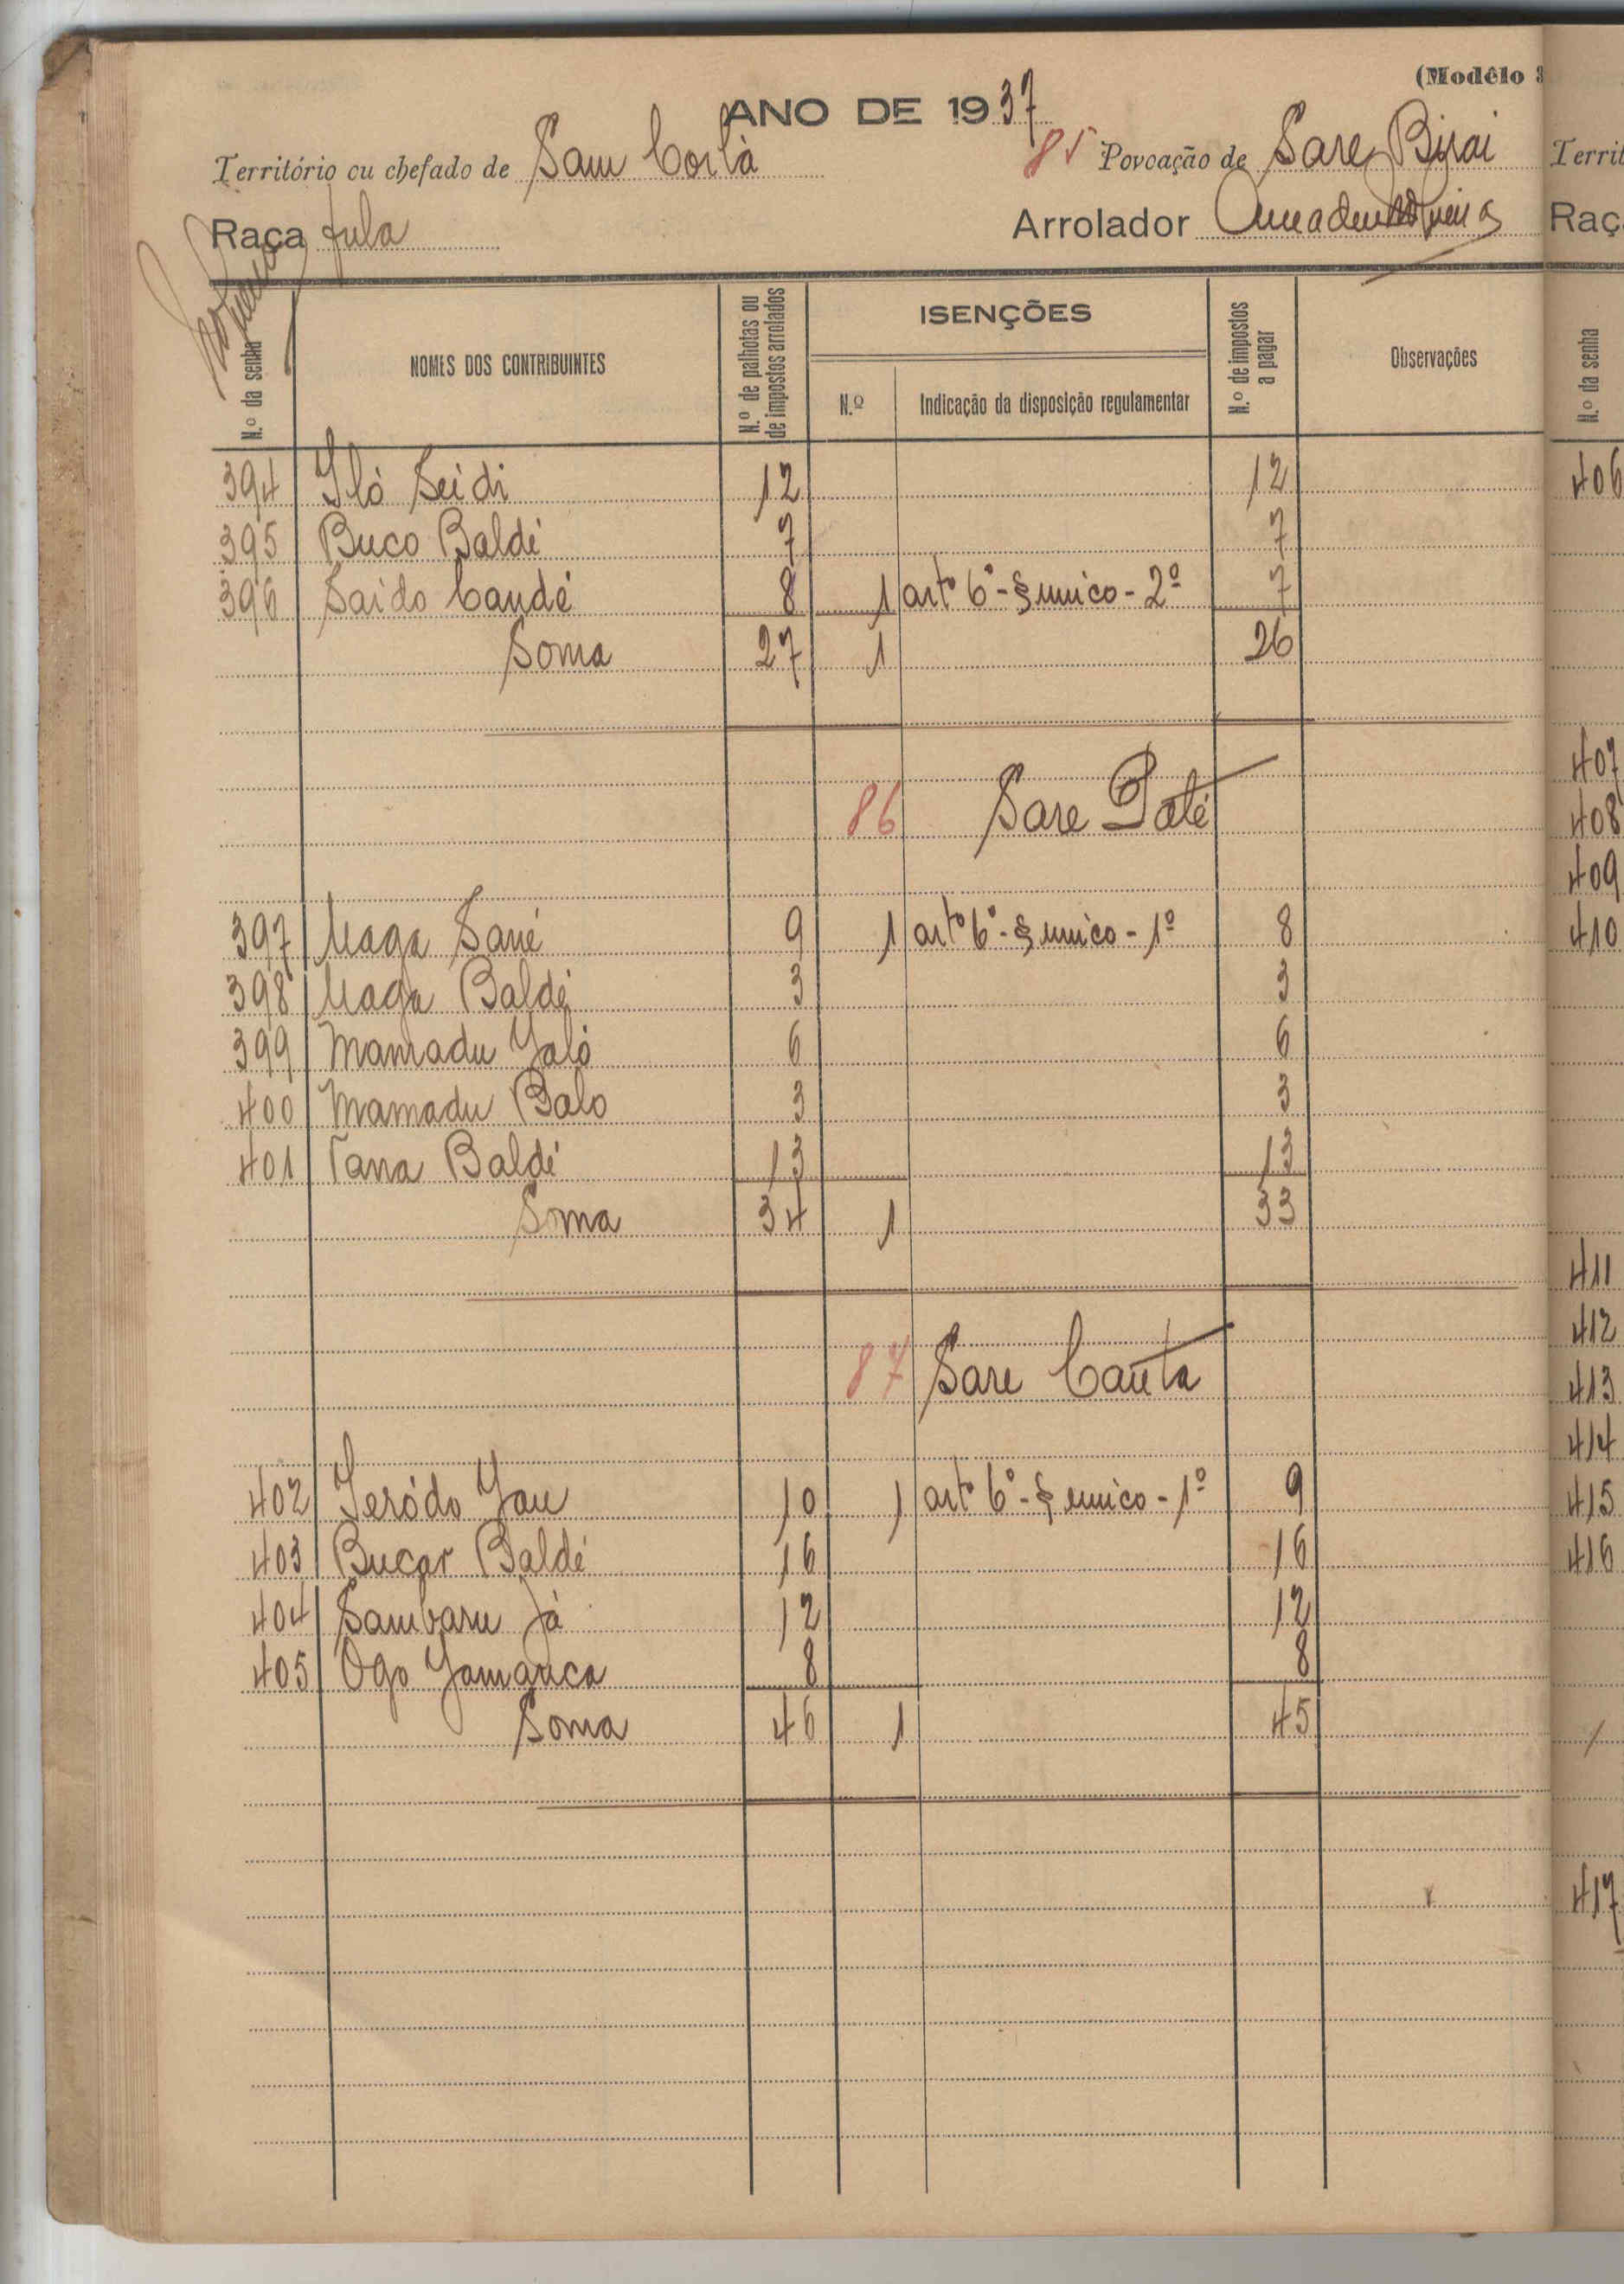 (Modêlo 3
ANO DE 1937
Território ou chefado de Sam Corlà 85 Povoação de Sare Birai
Raça fula Arrolador Amadeu
N.º da senha NOMES DOS CONTRIBUINTES N.º de palhotas ou de impostos arrolados ISENÇÕES N.º Indicação da disposição regulamentar N.º de impostos a pagar Observações
394 Iló Seidi 12 12
395 Buco Baldé 7 7
396 Saido Candé 8 1 artº 6º - § unico - 2º 7
Soma 27 1 26
86 Sare Paté
397 Maga Sané 9 1 artº 6º - § unico - 1º 8
398 Maga Baldé 3 3
399 Mamadu Jaló 6 6
400 Mamadu Balo 3 3
401 Tana Baldé 13 13
Soma 34 1 33
87 Sare Cauta
402 Seródo Jau 10 1 artº 6º - § unico - 1º 9
403 Bucar Baldé 16 16
404 Sambaru Já 12 12
405 Ogo Jamanca 8 8
Soma 46 1 45
Territ
Raç
N.º da senha
406
407
408
409
410
411
412
413
414
415
416
417